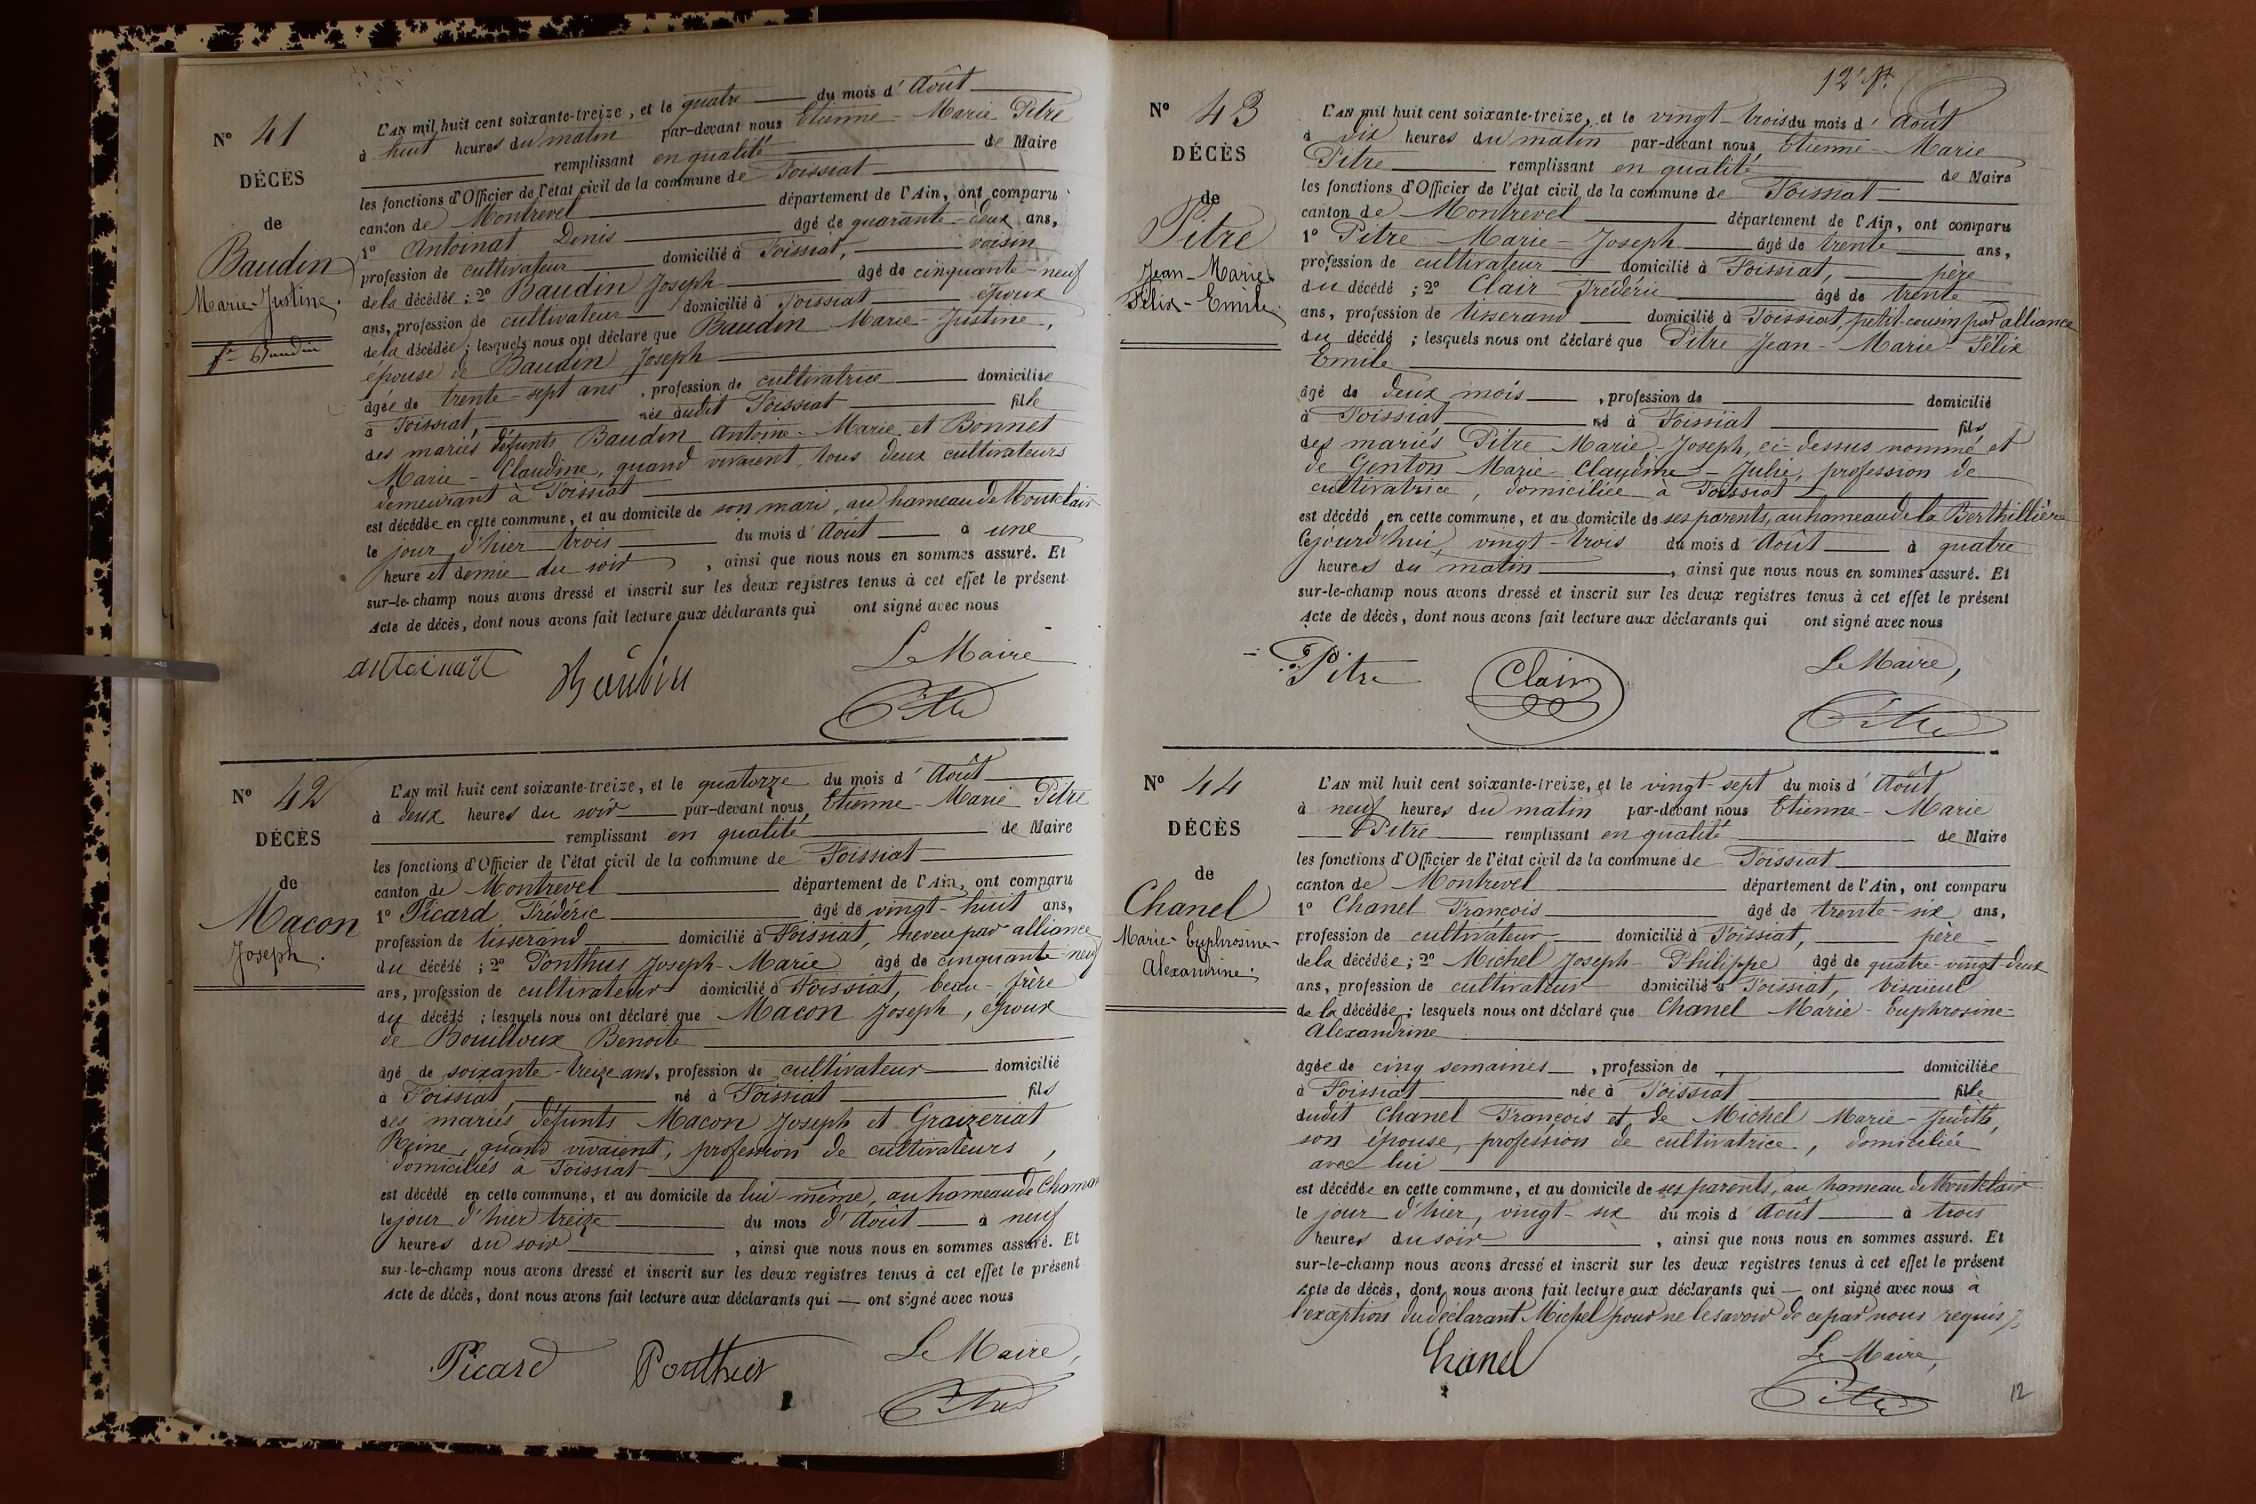 N° 41
DÉCÈS
de
Baudin
Marie-Justine.
fe Baudin
L'AN mil huit cent soixante-treize, et le quatre du mois d'Août
à huit heures du matin par-devant nous Etienne-Marie Pitre
remplissant en qualité de Maire
les fonctions d'Officier de l'état civil de la commune de Foissiat
canton de Montrevel département de l'Ain, ont comparu
1° Antoinat Denis âgé de quarante-deux ans,
profession de cultivateur domicilié à Foissiat, voisin
de la décédée ; 2° Baudin Joseph âgé de cinquante-neuf
ans, profession de cultivateur domicilié à Foissiat époux
de la décédée ; lesquels nous ont déclaré que Baudin Marie-Justine,
épouse de Baudin Joseph
âgée de trente-sept ans, profession de cultivatrice domiciliée
à Foissiat, née audit Foissiat fille
des mariés défunts Baudin Antoine-Marie et Bonnet
Marie-Claudine, quand vivaient, tous deux cultivateurs
demeurant à Foissiat
est décédée en cette commune, et au domicile de son mari, au hameau de Montclair
le jour d'hier trois du mois d'Août à une
heure et demie du soir, ainsi que nous nous en sommes assuré. Et
sur-le-champ nous avons dressé et inscrit sur les deux registres tenus à cet effet le présent
Acte de décès, dont nous avons fait lecture aux déclarants qui ont signé avec nous
Le Maire
antoinat Baudin Pitre
N° 42
DÉCÈS
de
Macon
Joseph.
L'AN mil huit cent soixante-treize, et le quatorze du mois d'Août
à deux heures du soir par-devant nous Etienne-Marie Pitre
remplissant en qualité de Maire
les fonctions d'Officier de l'état civil de la commune de Foissiat
canton de Montrevel département de l'Ain, ont comparu
1° Picard Frédéric âgé de vingt-huit ans,
profession de tisserand domicilié à Foissiat, neveu par alliance
du décédé ; 2° Ponthus Joseph-Marie âgé de cinquante-neuf
ans, profession de cultivateur domicilié à Foissiat, beau-frère
du décédé ; lesquels nous ont déclaré que Macon Joseph, époux
de Bouilloux Benoite
âgé de soixante-treize ans, profession de cultivateur domicilié
à Foissiat, né à Foissiat fils
des mariés défunts Macon Joseph et Graizeriat
Reine, quand vivaient, profession de cultivateurs,
domiciliés à Foissiat
est décédé en cette commune, et au domicile de lui-même, au hameau de
le jour d'hier treize du mois d'Août à neuf
heures du soir, ainsi que nous nous en sommes assuré. Et
sur-le-champ nous avons dressé et inscrit sur les deux registres tenus à cet effet le présent
Acte de décès, dont nous avons fait lecture aux déclarants qui — ont signé avec nous
Le Maire,
Picard Ponthus Pitre
12e
N° 43
DÉCÈS
de
Pitre
Jean-Marie
Félix-Emile.
L'AN mil huit cent soixante-treize, et le vingt-trois du mois d'Août
à dix heures du matin par-devant nous, Etienne-Marie
Pitre remplissant en qualité de Maire
les fonctions d'Officier de l'état civil de la commune de Foissiat
canton de Montrevel département de l'Ain, ont comparu
1° Pitre Marie-Joseph âgé de trente ans,
profession de cultivateur domicilié à Foissiat, père
du décédé ; 2° Clair Frédéric âgé de trente
ans, profession de tisserand domicilié à Foissiat, petit-cousin par alliance
du décédé ; lesquels nous ont déclaré que Pitre Jean-Marie-Félix
Emile
âgé de deux mois, profession de domicilié
à Foissiat né à Foissiat fils
des mariés Pitre Marie-Joseph, ci-dessus nommé et
de Genton Marie-Claudine-Julie, profession de
cultivatrice, domiciliée à Foissiat
est décédé en cette commune, et au domicile de ses parents, au hameau de la Berthillière
Cejourd'hui, vingt-trois du mois d'Août à quatre
heures du matin, ainsi que nous nous en sommes assuré. Et
sur-le-champ nous avons dressé et inscrit sur les deux registres tenus à cet effet le présent
Acte de décès, dont nous avons fait lecture aux déclarants qui ont signé avec nous
Le Maire,
Pitre Clair Pitre
N° 44
DÉCÈS
de
Chanel
Marie-Euphrosine-
Alexandrine.
L'AN mil huit cent soixante-treize, et le vingt-sept du mois d'Août
à neuf heures du matin par-devant nous Etienne-Marie
Pitre remplissant en qualité de Maire
les fonctions d'Officier de l'état civil de la commune de Foissiat
canton de Montrevel département de l'Ain, ont comparu
1° Chanel François âgé de trente-six ans,
profession de cultivateur domicilié à Foissiat, père
de la décédée ; 2° Michel Joseph-Philippe âgé de quatre-vingt-deux
ans, profession de cultivateur domicilié à Foissiat, bisaïeul
de la décédée ; lesquels nous ont déclaré que Chanel Marie-Euphrosine-
Alexandrine
âgée de cinq semaines, profession de domiciliée
à Foissiat née à Foissiat fille
dudit Chanel François et de Michel Marie-Judith,
son épouse, profession de cultivatrice, domiciliée
avec lui
est décédée en cette commune, et au domicile de ses parents, au hameau de Montclair
le jour d'hier, vingt-six du mois d'Août à trois
heures du soir, ainsi que nous nous en sommes assuré. Et
sur-le-champ nous avons dressé et inscrit sur les deux registres tenus à cet effet le présent
Acte de décès, dont nous avons fait lecture aux déclarants qui — ont signé avec nous à
l'exception du déclarant Michel pour ne le savoir de ce par nous requis.
Le Maire,
Chanel Pitre
12